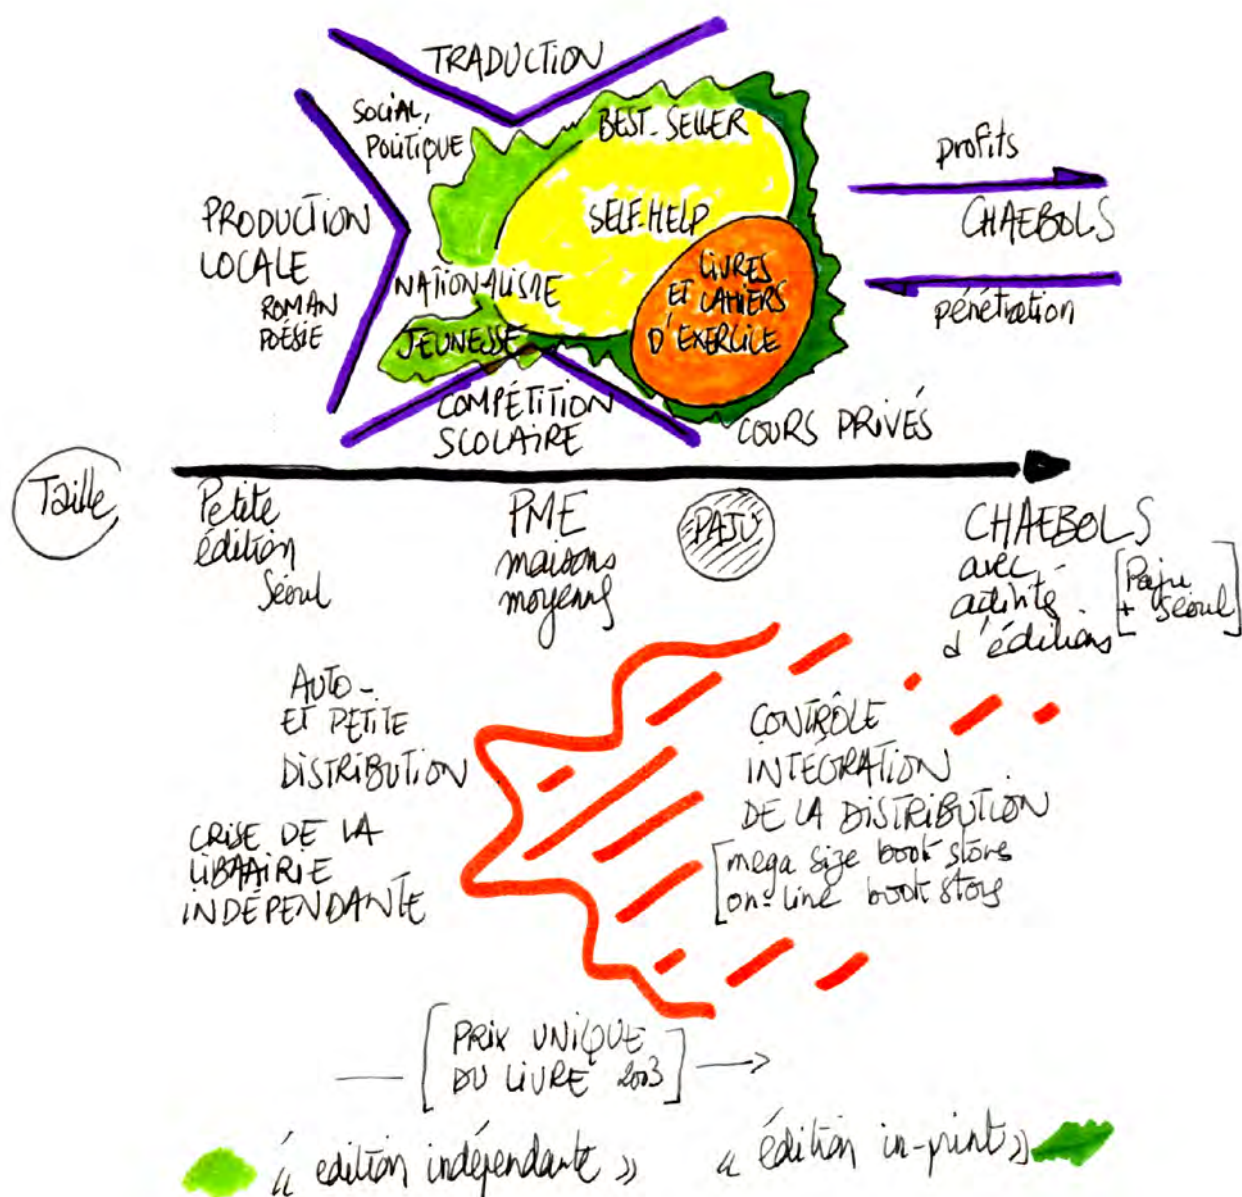 TRADUCTION
SOCIAL,
POLITIQUE
BEST-SELLER
profits
PRODUCTION
LOCALE
ROMAN
POÉSIE
SELF-HELP
CHAEBOLS
NATIONALISTE
LIVRES
ET CAHIERS
D'EXERCICE
pénétration
JEUNESSE
COMPÉTITION
SCOLAIRE
COURS PRIVÉS
Taille
Petite
édition
Séoul
PME
maisons
moyennes
PAJU
CHAEBOLS
avec
activité
d'éditions
[Paju
+ Séoul]
AUTO-
ET PETITE
DISTRIBUTION
CRISE DE LA
LIBRAIRIE
INDÉPENDANTE
CONTRÔLE
INTÉGRATION
DE LA DISTRIBUTION
[mega size book stors
on-line book stors
[PRIX UNIQUE
DU LIVRE 2003]
« édition indépendante »
« édition in-print »